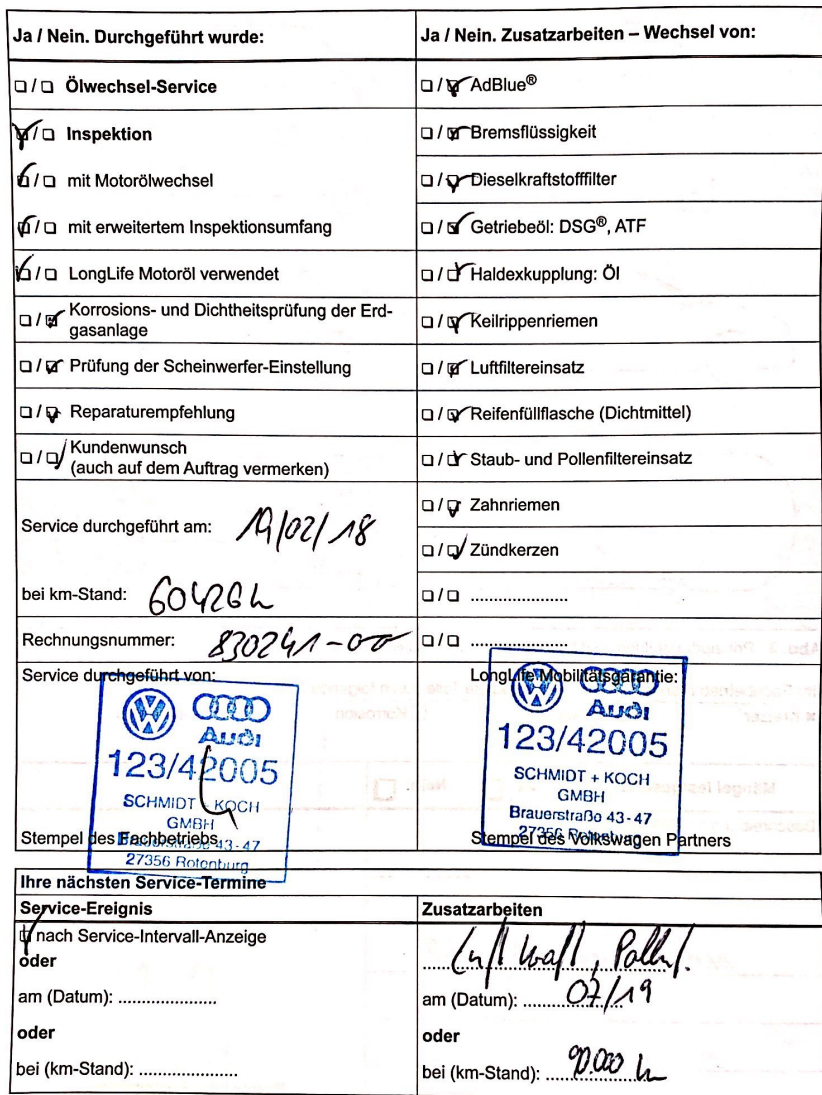 Ja / Nein. Durchgeführt wurde:
☐ / ☐ Ölwechsel-Service
☑ / ☐ Inspektion
☑ / ☐ mit Motorölwechsel
☑ / ☐ mit erweitertem Inspektionsumfang
☑ / ☐ LongLife Motoröl verwendet
☐ / ☑ Korrosions- und Dichtheitsprüfung der Erd-
gasanlage
☐ / ☑ Prüfung der Scheinwerfer-Einstellung
☐ / ☑ Reparaturempfehlung
☐ / ☑ Kundenwunsch
(auch auf dem Auftrag vermerken)
Service durchgeführt am: 19/02/18
bei km-Stand: 60426
Rechnungsnummer: 830241-00
Service durchgeführt von:
Audi
123/42005
SCHMIDT + KOCH
GMBH
Brauerstraße 43-47
27356 Rotenburg
Stempel des Fachbetriebs
Ja / Nein. Zusatzarbeiten – Wechsel von:
☐ / ☑ AdBlue®
☐ / ☑ Bremsflüssigkeit
☐ / ☑ Dieselkraftstofffilter
☐ / ☑ Getriebeöl: DSG®, ATF
☐ / ☑ Haldexkupplung: Öl
☐ / ☑ Keilrippenriemen
☐ / ☑ Luftfiltereinsatz
☐ / ☑ Reifenfüllflasche (Dichtmittel)
☐ / ☑ Staub- und Pollenfiltereinsatz
☐ / ☑ Zahnriemen
☐ / ☑ Zündkerzen
☐ / ☐ .....................
☐ / ☐ .....................
LongLife Mobilitätsgarantie:
Audi
123/42005
SCHMIDT + KOCH
GMBH
Brauerstraße 43-47
27356 Rotenburg
Stempel des Volkswagen Partners
Ihre nächsten Service-Termine
Service-Ereignis
☑ nach Service-Intervall-Anzeige
oder
am (Datum): .....................
oder
bei (km-Stand): .....................
Zusatzarbeiten
am (Datum): 07/19
oder
bei (km-Stand): 90.000